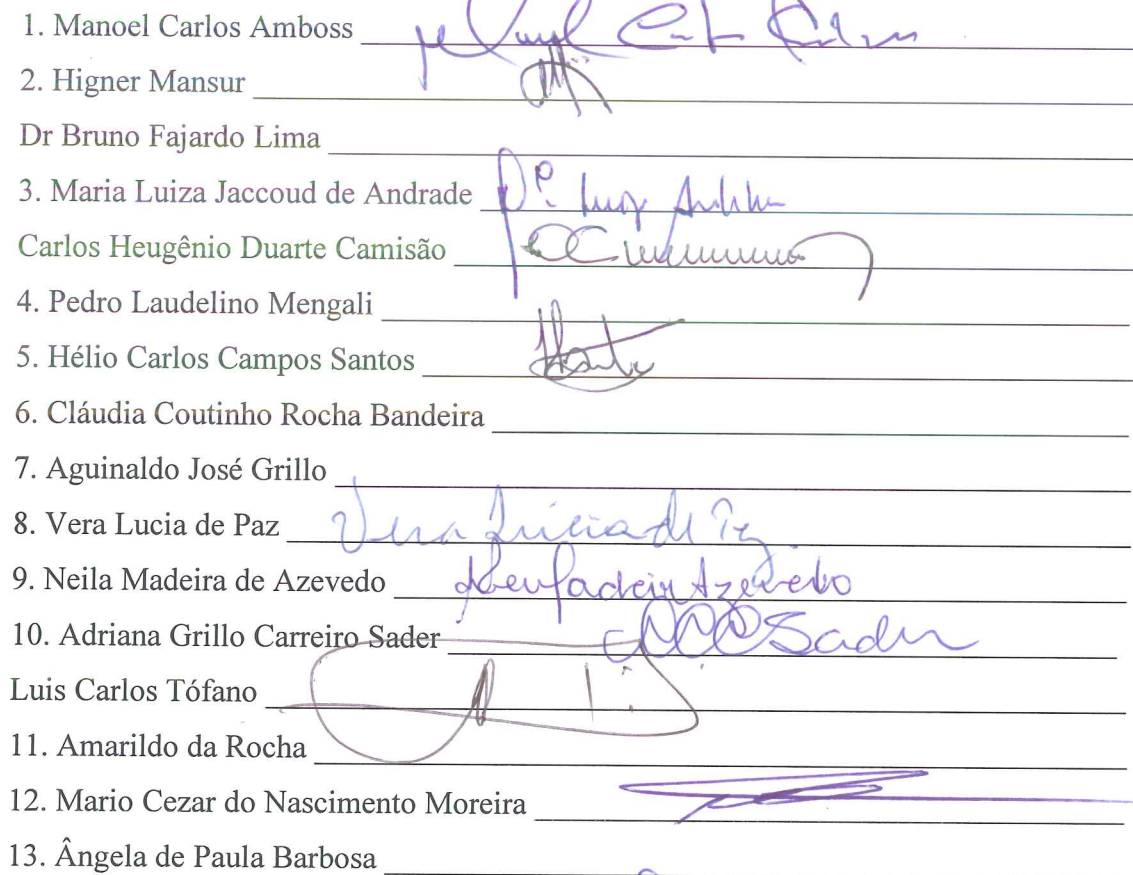 1. Manoel Carlos Amboss
2. Higner Mansur
Dr Bruno Fajardo Lima
3. Maria Luiza Jaccoud de Andrade
Carlos Heugênio Duarte Camisão
4. Pedro Laudelino Mengali
5. Hélio Carlos Campos Santos
6. Cláudia Coutinho Rocha Bandeira
7. Aguinaldo José Grillo
8. Vera Lucia de Paz Vera Lúcia de Paz
9. Neila Madeira de Azevedo Azevedo
10. Adriana Grillo Carreiro Sader Sader
Luis Carlos Tófano
11. Amarildo da Rocha
12. Mario Cezar do Nascimento Moreira
13. Ângela de Paula Barbosa